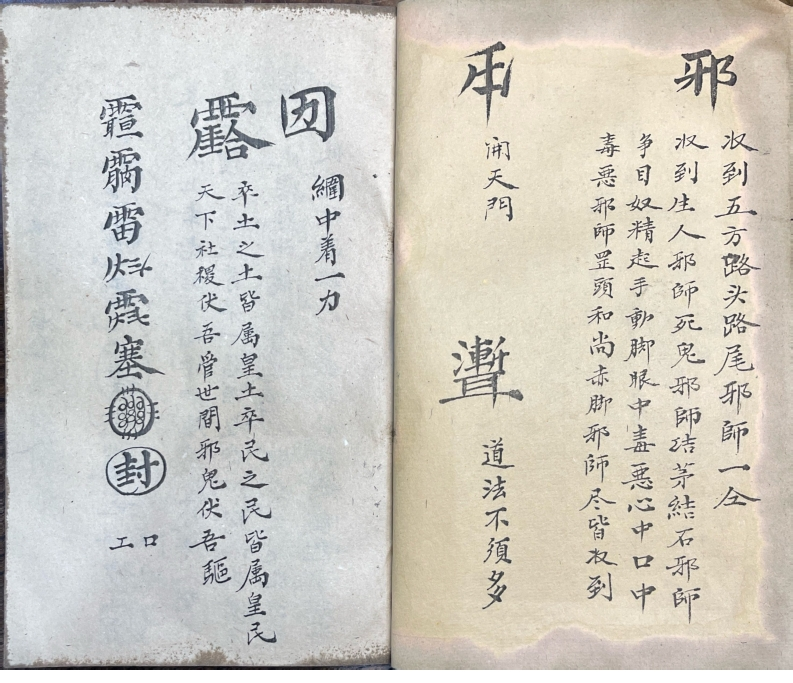 邪
收到五方路头路尾邪师一仝
收到生人邪师死鬼邪师结茅结石邪师
争目奴精起手動脚眼中毒恶心中口中
毒恶邪师罡頭和尚赤脚邪师尽皆收到
開天門
道法不須多
囨
綱中着一力
率土之土皆属皇土率民之民皆属皇民
天下社稷伏吾管世間邪鬼伏吾驅
雷
塞
封
口
工